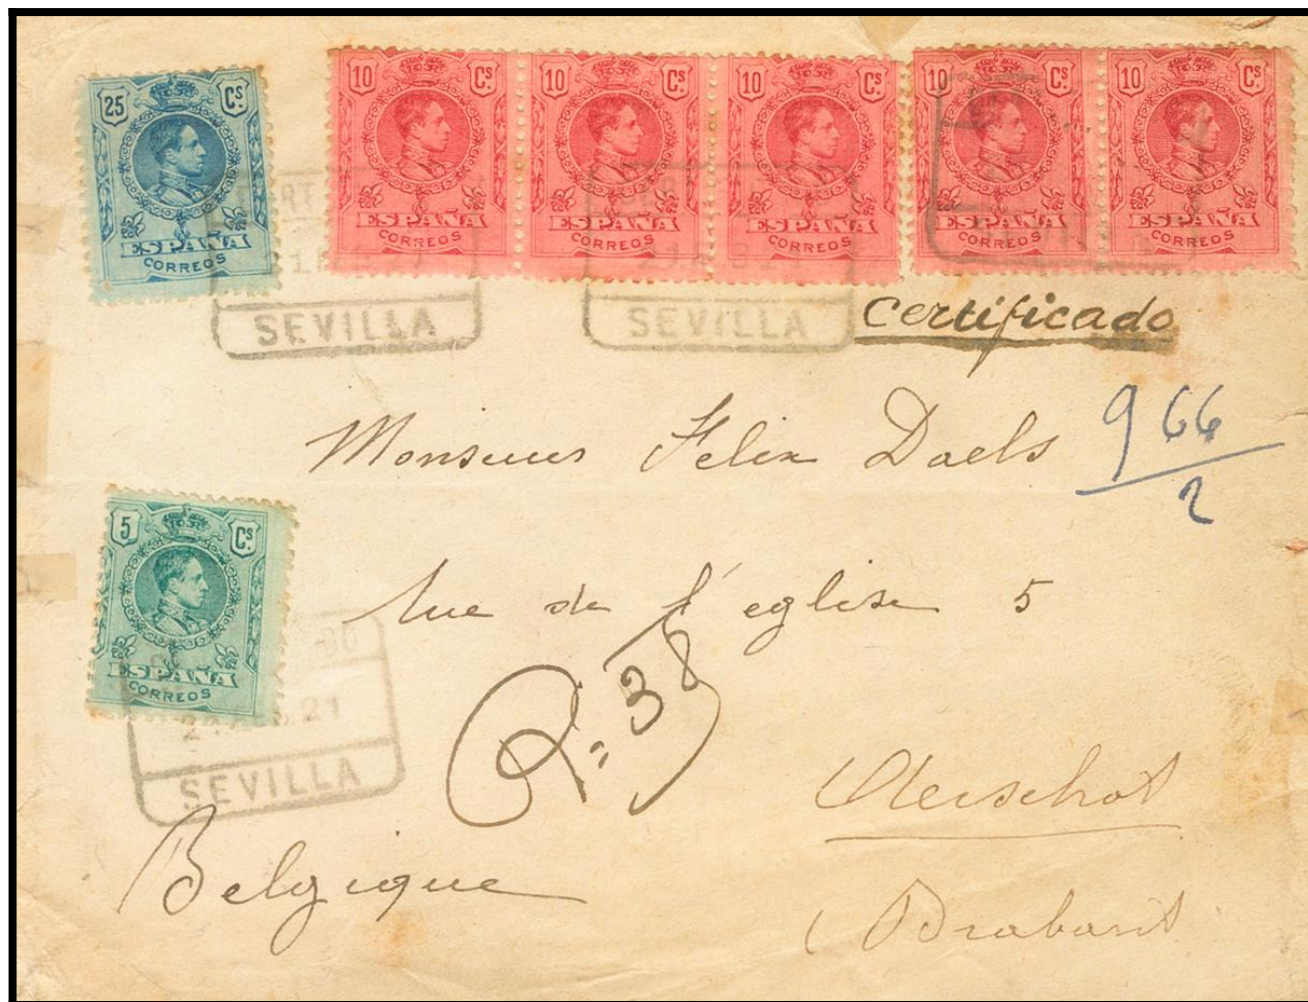 25 Cs.
ESPAÑA
CORREOS
10 Cs.
ESPAÑA
CORREOS
10 Cs.
ESPAÑA
CORREOS
10 Cs.
ESPAÑA
CORREOS
10 Cs.
ESPAÑA
CORREOS
10 Cs.
ESPAÑA
CORREOS
SEVILLA
SEVILLA
Certificado
966
2
Monsieur Felix Daels
5 Cs.
ESPAÑA
CORREOS
21
SEVILLA
Rue de l'eglise 5
R = 38
Aerschot
Belgique
(Brabant